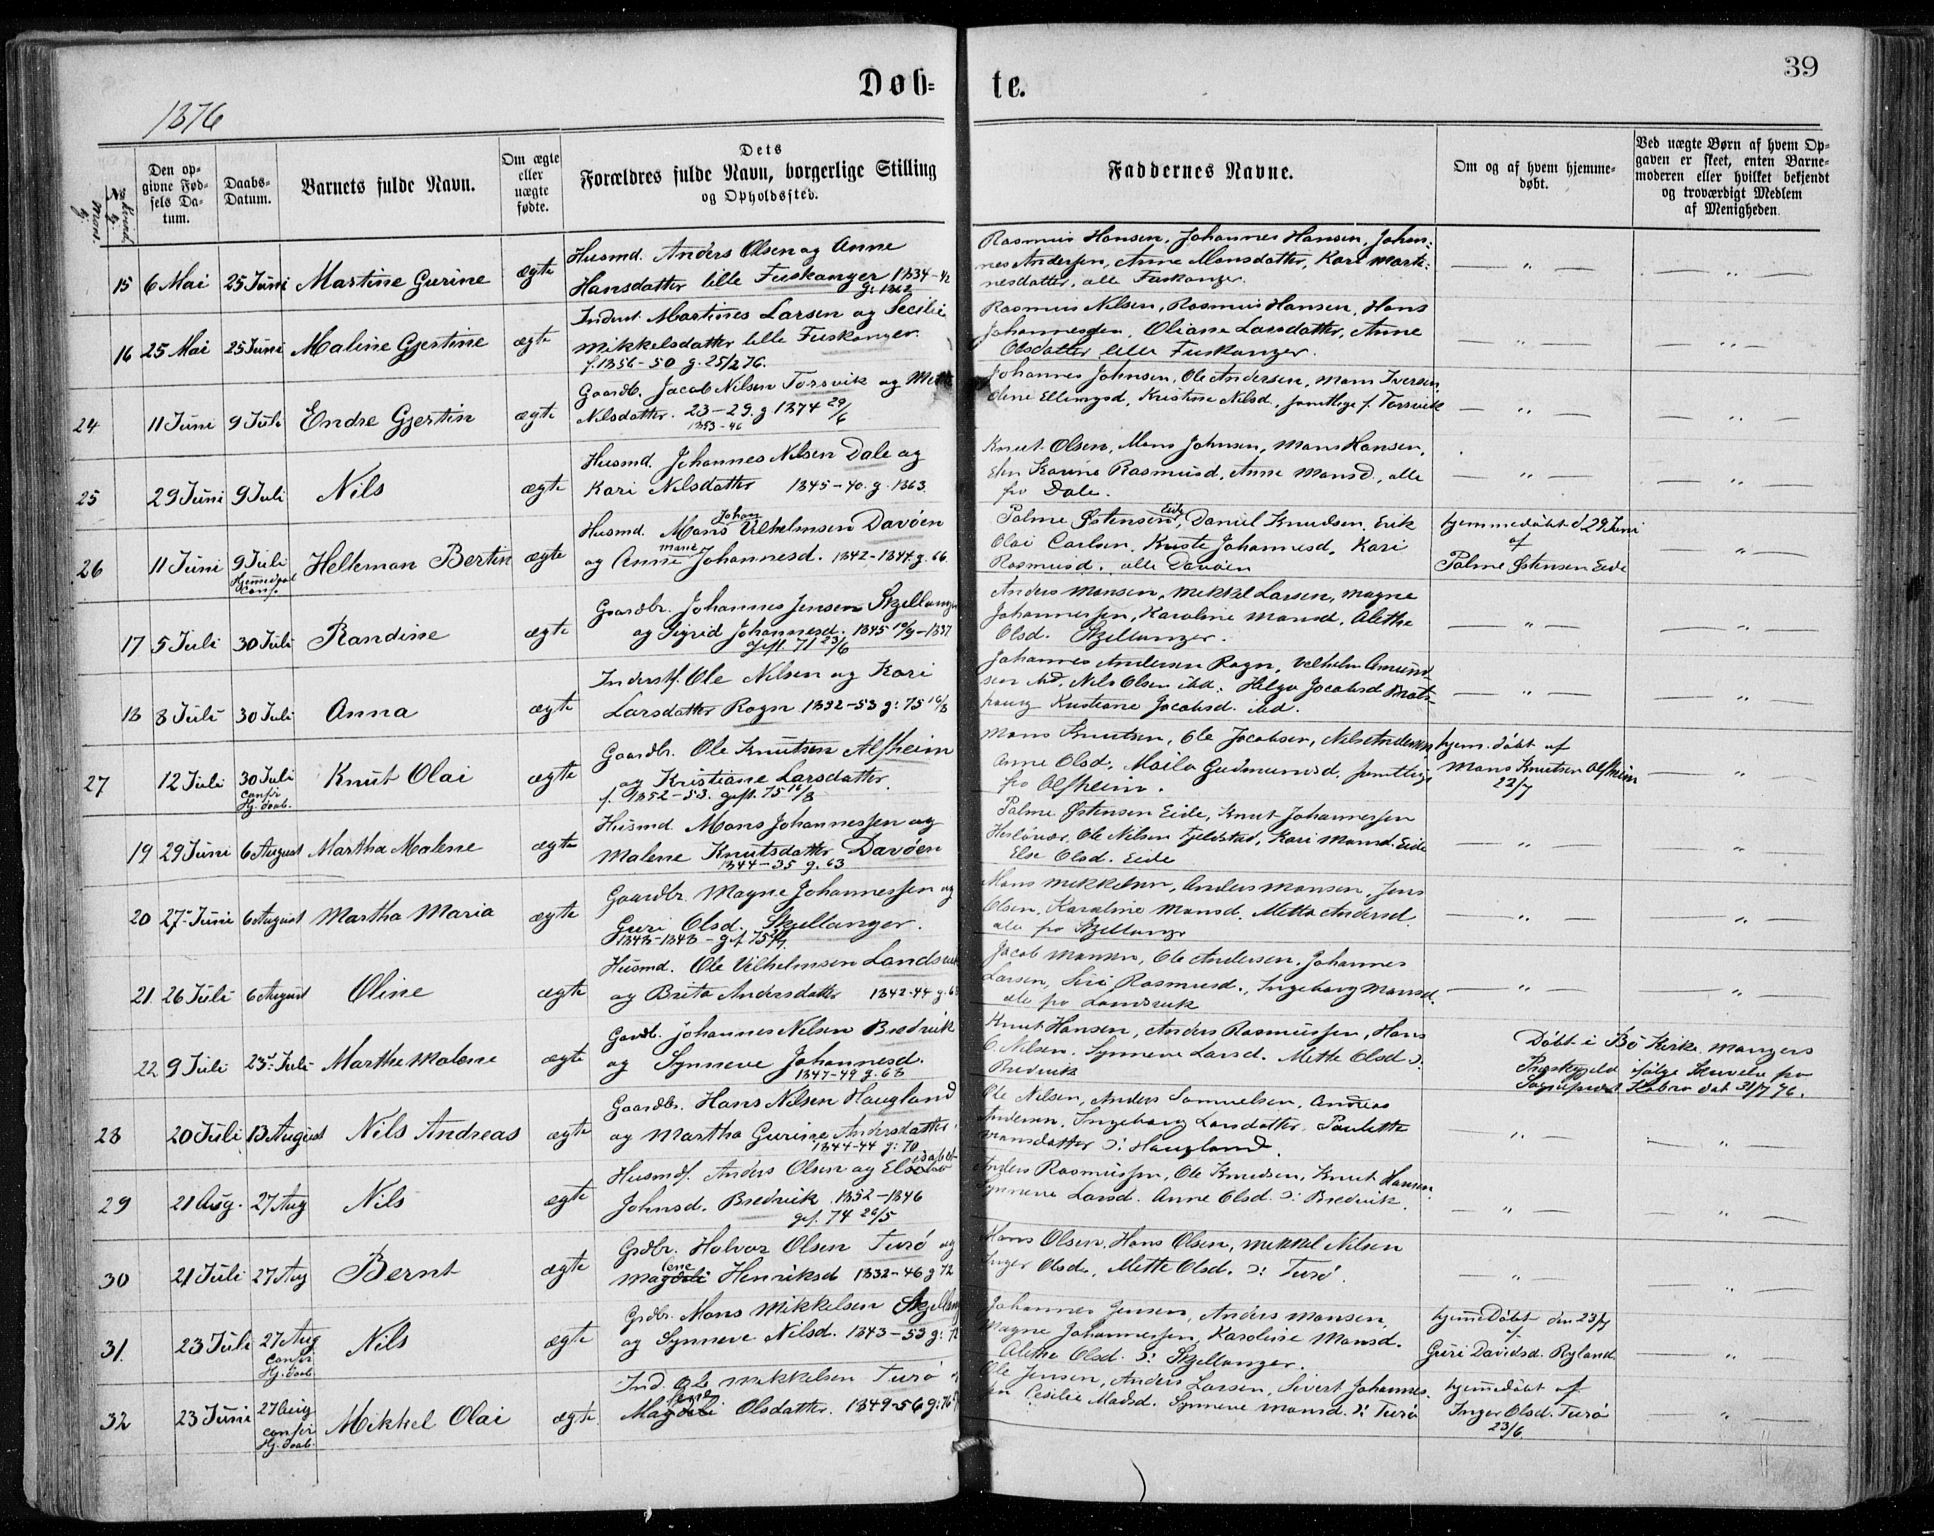 Døb= te.
39
1876
Den op-
givne Fød-
sels Da-
tum.
Daabs-
Datum.
Barnets fulde Navn.
Om ægte
eller
uægte
fødte.
Dets
Forældres fulde Navn, borgerlige Stilling
og Opholdssted.
Faddernes Navne.
Om og af hvem hjemme-
døbt.
Ved uægte Børn af hvem Op-
gaven er skeet, enten Barne-
moderen eller hvilket bekjendt
og troværdigt Medlem
af Menigheden.
15 6 Mai 25 Juni Martine Gurine ægte
Husmd. Anders Olsen og Anne
Hansdatter lille Fuskanger 1834-42
g: 1862
Rasmus Hansen, Johannes Hansen, Johan-
nes Andersen, Anne Monsdatter, Kari Marti-
nesdatter, alle Fuskanger.
16 25 Mai 25 Juni Malene Gjertine ægte
Inderst Martines Larsen og Secilie
Mikkelsdatter lille Fuskanger.
f. 1856-50 g. 25/2 76.
Rasmus Nilsen, Rasmus Hansen, Hans
Johannessen, Oliane Larsdatter, Anne
Olsdatter lille Fuskanger.
24 11 Juni 9 Juli Endre Gjertin ægte
Gaardb. Jacob Nilsen Torsvik og Mette
Nilsdatter. 23-29. g 1874 29/6
1853-46
Johannes Johnsen, Ole Andersen, Mons Iversen,
Oline Ellingsd, Kristine Nilsd, samtlige f. Torsvik
25 29 Juni 9 Juli Nils ægte
Husmd. Johannes Nilsen Dale og
Kari Nilsdatter 1845-40. g. 1863.
Knut Olsen, Mons Johnsen, Mons Hansen,
Karine Rasmusd, Anne Monsd., alle
fra Dale.
26 11 Juni 9 Juli Helleman Bertin ægte
Hjemmedaab
conf.
Husmd. Mons Johan Vilhelmsen Davøen
og Anne Marie Johannesd. 1842-1847 g. 66.
Palme Østensen Eide, Daniel Knudsen, Erik
Olai Carlsen, Kriste Johannesd, Kari
Rasmusd, alle Davøen
hjemmedøbt d 29 Juni
af
Palme Østensen Eide
17 5 Juli 30 Juli Randine ægte
Gaardbr. Johannes Jensen Skjellanger
og Sigrid Johannesd. 1845 10/9-1837
gift. 71 23/6
Anders Monsen, Mikkel Larsen, Magne
Johannessen, Karoline Monsd, Alethe
Olsd. Skjellanger.
18 8 Juli 30 Juli Anna ægte
Inderstf. Ole Nilsen og Kari
Larsdatter Rogn 1852-53 g: 75 16/8
Johannes Andersen Rogn, Vilhelm Amund-
sen ibd, Nils Olsen ibd, Helga Jacobsd
Kristiane Jacobsd. ibd.
27 12 Juli 30 Juli Knut Olai ægte
confir
Hj. daab.
Gaardbr. Ole Knutsen Alfheim
og Kristiane Larsdatter
f. 1852-53. gift. 75 16/8
Mons Knutsen, Ole Jacobsen, Nils Andersen
Anne Olsd, Maila Gudmundsd, samtlige
fra Alfheim.
hjem. døbt af
Mons Knutsen Alfheim
22/7
19 29 Juni 6 August Martha Malene ægte
Husmd Mons Johannessen og
Malene Knutsdatter Davøen
1844-35 g. 63
Palme Østensen Eide, Knut Johannessen
Herløvær, Ole Nilsen Fjeldstad, Kari Monsd. Eide
Else Olsd. Eide
20 27 Juni 6 August Martha Maria ægte
Gaardbr. Magne Johannessen og
Guri Olsd. Skjellanger.
1843-1848-
Mons Mikkelsen, Anders Monsen, Jens
Olsen, Karoline Monsd. Metta Andersd
alle fra Skjellanger
21. 26 Juli 6 August Oline ægte
Husmd. Ole Vilhelmsen Landsvik
og Brita Andersdatter 1842-44 g. 6
Jacob Monsen, Ole Andersen, Johannes
Larsen, Siri Rasmusd., Ingeborg Monsd.
alle fra Landsvik
22 9 Juli 23 Juli Marthe Malene ægte
Gardb. Johannes Nilsen Bredvik
og Synneve Johannesd.
1847-49 g. 68
Knut Hansen, Anders Rasmussen, Hans
O. Nilsen, Synneve Larsd. Mette Olsd ɔ:
Bredvik
Døbt i Bø Kirke, Mangers
Præstegjeld ifølge Skrivelse fra
Sognepræst Kobro dat 31/7 76.
28 20 Juli 13 August Nils Andreas ægte
Gaardbr. Hans Nilsen Haugland
og Martha Gurine Andersdatter
1844-44 g: 70
Ole Nilsen, Anders Samuelsen, Andreas
Andersen, Ingeborg Larsdatter, Paulette
Monsdatter ɔ: Haugland.
29 21 Aug. 27 Aug Nils ægte
Husmdf. Anders Olsen og Elisabet
Johnsd. Bredvik 1852-1846
gif. 74 26/5
Anders Rasmussen, Ole Knudsen, Knut Hansen
Synneve Larsd. Anne Olsd. ɔ: Bredvik.
30 21 Juli 27 Aug Bernt ægte
Grdbr. Halvor Olsen Turø og
Magdalene Henriksd 1832-46 g 72
Hans Olsen, Hans Olsen, Mikkel Nilsen
Inger Olsd, Mette Olsd. ɔ: Turø.
31. 23 Juli 27 Aug Nils ægte
confir
Hj. daab
Grdbr. Mons Mikkelsen Skjellang
og Synneve Nilsd. 1843-53 g: 72
Johannes Jensen, Anders Monsen,
Magne Johannessen, Karoline Monsd.
Alethe Olsd. ɔ: Skjellanger.
hjemmedøbt den 23/7
af
Guri Davidsd. Ryland
32 23 Juni 27 Aug Mikkel Olai ægte
confir
Hj. daab.
Ind. Ole Mikkelsen Turø
Olsdatter. 1849-56 g: 76
Ole Jensen, Anders Larsen, Sivert Johannes-
sen Cecilie Madsd. Synneve Monsd. ɔ: Turø
hjemmedøbt af
Inger Olsd. Turø
23/6